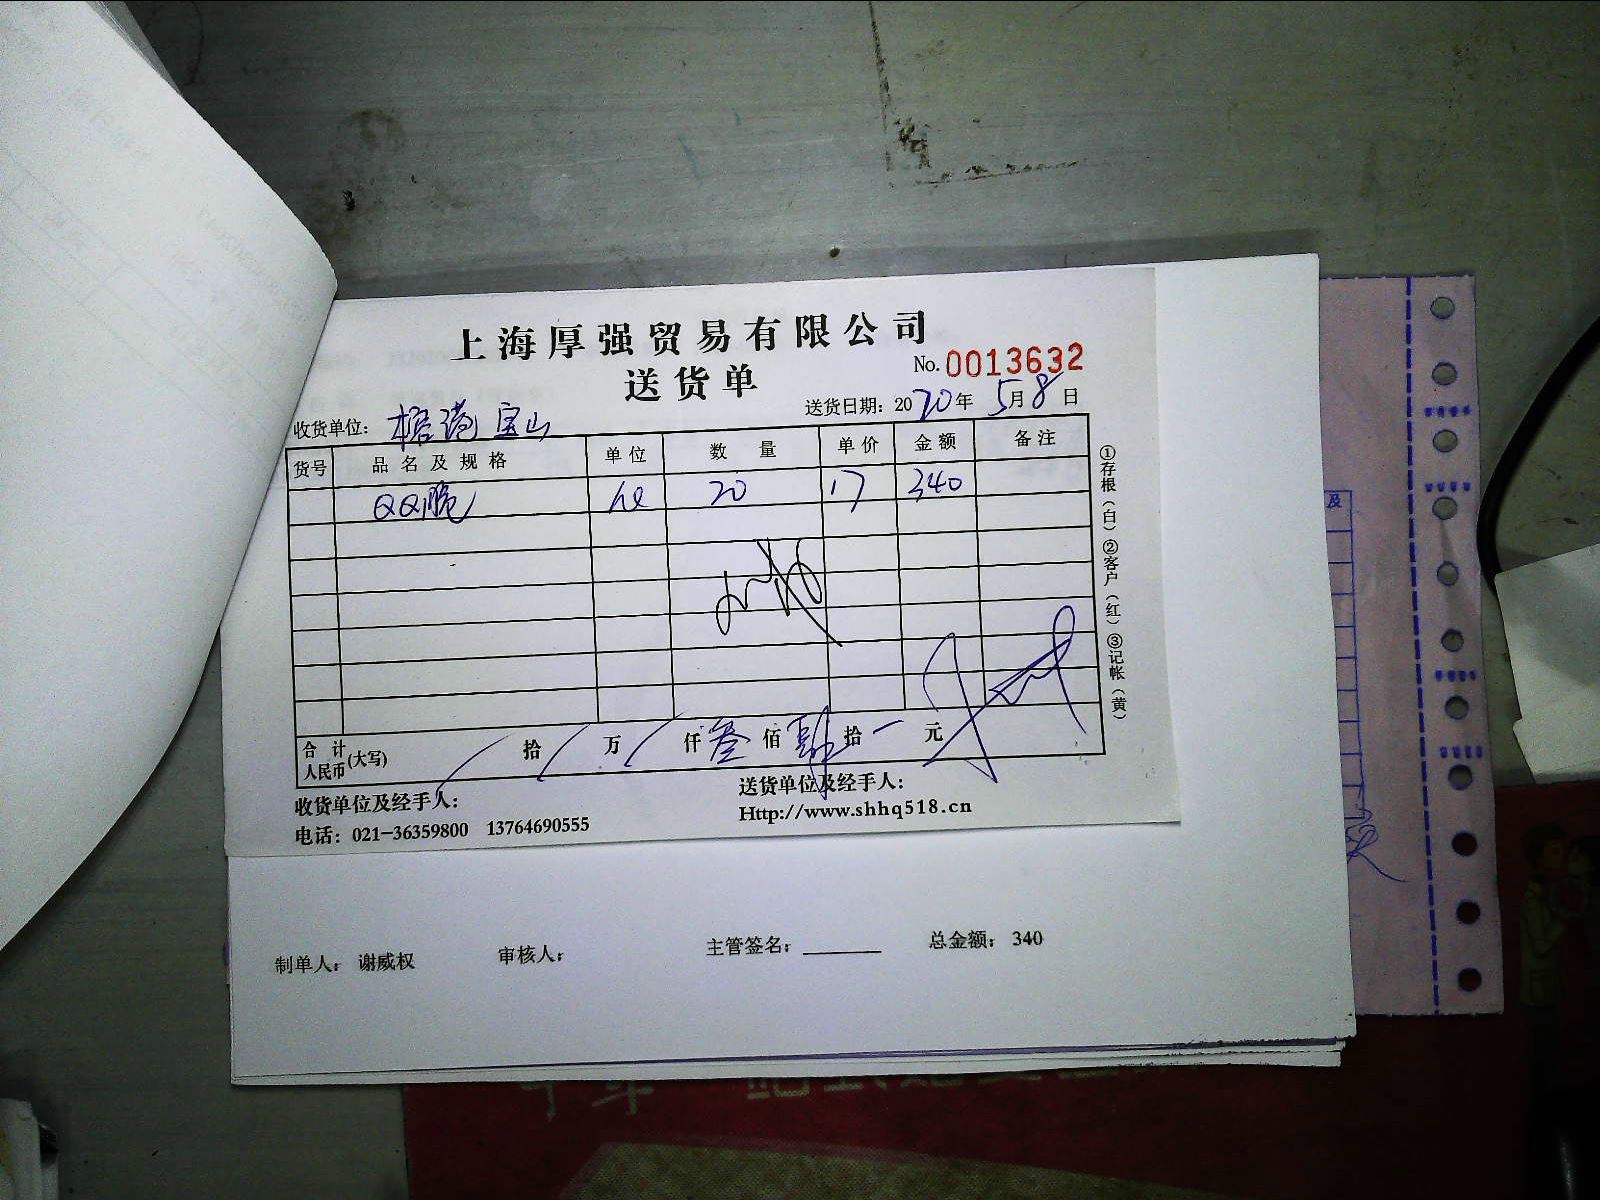 上海厚强贸易有限公司
送货单
No. 0013632
收货单位: 宝山
送货日期: 2020年 5月8日
货号 品名及规格 单位 数量 单价 金额 备注
QQ脆 20 17 340
合计人民币(大写) 拾 万 仟 叁佰 肆拾 元
收货单位及经手人:
送货单位及经手人:
电话: 021-36359800 13764690555
Http://www.shhq518.cn
①存根(白)②客户(红)③记帐(黄)
制单人: 谢威权 审核人: 主管签名: 总金额: 340
及